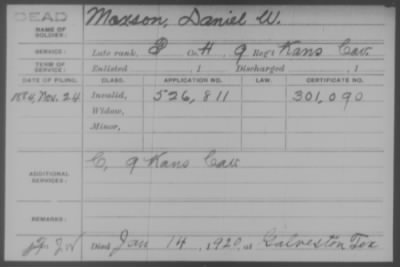 DEAD
NAME OF SOLDIER: Maxson, Daniel W.
SERVICE: Late rank, P Co. H, 9 Reg't Kans Cav.
TERM OF SERVICE: Enlisted , 1 Discharged , 1
DATE OF FILING. CLASS. APPLICATION NO. LAW. CERTIFICATE NO.
1884, Nov. 24 Invalid, 526,811 301,090
Widow,
Minor,
ADDITIONAL SERVICES: C, 9 Kans Cav
REMARKS:
Died Jan 14, 1920, at Galveston Tex